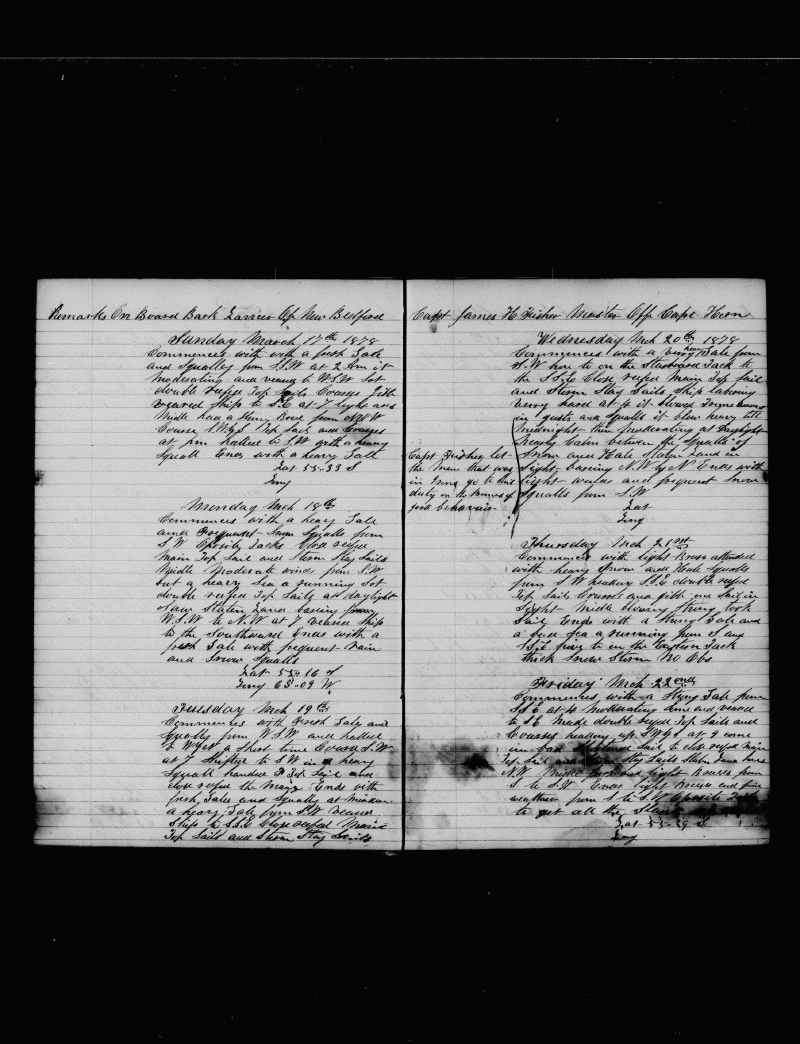 Remarks On Board Bark Lancer Of New Bedford
Sunday March 17th 1878
Commences with with a fresh Gale
and Squally from S.S.W at 2 Am it
moderating and veared to W.S.W Set
double reefed Top Sails Courses Gibb
veared Ship to S.E at 7 light airs
Middle had a Strong Breze from N.W
Course S.W by S Top Sails and Courses
at pm halled to S.W with a heavy
Squall Ends with a heavy Gale
Lat 55-33 S
Long
Monday Mch 18th
Commences with a heavy Gale
and Frequent Snow Squalls from
S.W Oposite Tacks Close reefed
Main Top Sail and Storm Stay Sails
Middle Moderate winds from S.W
but a heavy Sea a running Set
double reefed Top Sails at daylight
Saw Staten Land baring from
W.S.W to N.W at 7 veared Ship
to the Southward Ends with a
fresh Gale with frequent rain
and Snow Squalls
Lat 55-16 S
Long 63-09 W
Tuesday Mch 19th
Commences with Fresh Gale and
Squally from W.S.W and halled
to W by N a short time Course S.W
at 7 Shifted to S.W in a heavy
Squall handed F Top Sail and
close reefed the Main Ends with
fresh Gales and Squally at Midnight
a heavy Gale from S.W Veared
Ship to S.S.E Close reefed Main
Top Sails and Storm Stay Sails
Capt James H Fisher Master Off Cape Horn
Wednesday Mch 20th 1878
Commences with a very heavy Gale from
S.W hove to on the Starboard Tack to
the S.S.E Close reefed Main Top Sail
and Storm Stay Sails Ship laboring
very hard at 4 it blowes tremendous
in gusts and Squalls it blew heavy till
Midnight then moderating at Daylight
nearly Calm between the Squalls of
Snow and Hale Staten Land in
Sight bearing N.W by N Ends with
light winds and frequent Snow
Squalls from S.W
Lat
Long
Capt Fisher let
the Man that was
in Irons go to his
duty on the promis of
good behavior
Thursday Mch 21st
Commences with light Breses attended
with heavy Snow and Hale Squalls
from S.W heading S.S.E double reefed
Top Sails Courses and Gibb one Sail in
Sight Middle blowing Strong took
Sail Ends with a Strong Gale and
a bad Sea a running from S and
S.S.E
thick Snow Storm No Obs
Friday Mch 22nd
Commences with a Strong Gale from
S.S.E at 4 moderating Some and veared
to S.E Made double reefed Top Sails and
Courses heading up S.W by S at 9 come
in bad Shortened Sail to close reefed Main
Top Sail and Storm Stay Sails Staten Land bore
N.W Middle part light Breses from
S to S.W Ends light Breeses and fine
weather from S to S.W Oposite Tacks
to get all the
Lat 55-39 S
Long